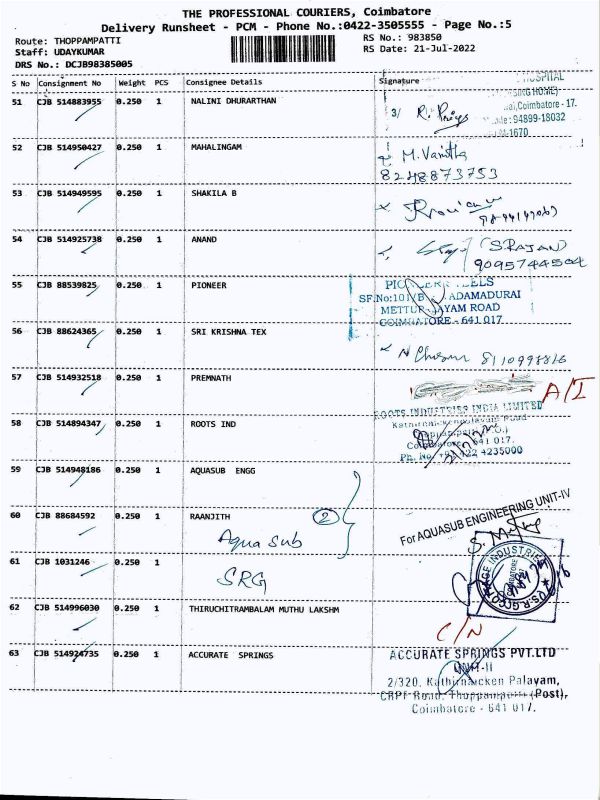 THE PROFESSIONAL COURIERS, Coimbatore
Delivery Runsheet - PCM - Phone No.:0422-3505555 - Page No.:5
Route: THOPPAMPATTI
RS No.: 983850
Staff: UDAYKUMAR
RS Date: 21-Jul-2022
DRS No.: DCJB98385005
S No Consignment No Weight PCS Consignee Details Signature
HOSPITAL
51 CJB 514883955 0.250 1 NALINI DHURARTHAN
Coimbatore - 17.
94899-18032
1670
52 CJB 514950427 0.250 1 MAHALINGAM
M. Vanitha
8248873753
53 CJB 514949595 0.250 1 SHAKILA B
54 CJB 514925738 0.250 1 ANAND
(S RAJAN)
9095744504
55 CJB 88539825 0.250 1 PIONEER
PIONEER
ADAMADURAI
METTUPALAYAM ROAD
COIMBATORE - 641 017
56 CJB 88624365 0.250 1 SRI KRISHNA TEX
57 CJB 514932518 0.250 1 PREMNATH
A/I
ROOTS INDUSTRIES INDIA LIMITED
58 CJB 514894347 0.250 1 ROOTS IND
Kathirnaickenpalayam Road
Thoppampatti (P.O.)
Coimbatore - 641 017.
Ph. No. +91 422 4235000
59 CJB 514948186 0.250 1 AQUASUB ENGG
60 CJB 88684592 0.250 1 RAANJITH
2
Aqua sub
For AQUASUB ENGINEERING UNIT-IV
61 CJB 1031246 0.250 1
SRG
62 CJB 514996030 0.250 1 THIRUCHITRAMBALAM MUTHU LAKSHM
C/N
63 CJB 514924735 0.250 1 ACCURATE SPRINGS
ACCURATE SPRINGS PVT.LTD
UNIT-II
2/320, Kathirnaicken Palayam,
CRPF Road, Thoppampatti (Post),
Coimbatore - 641 017.